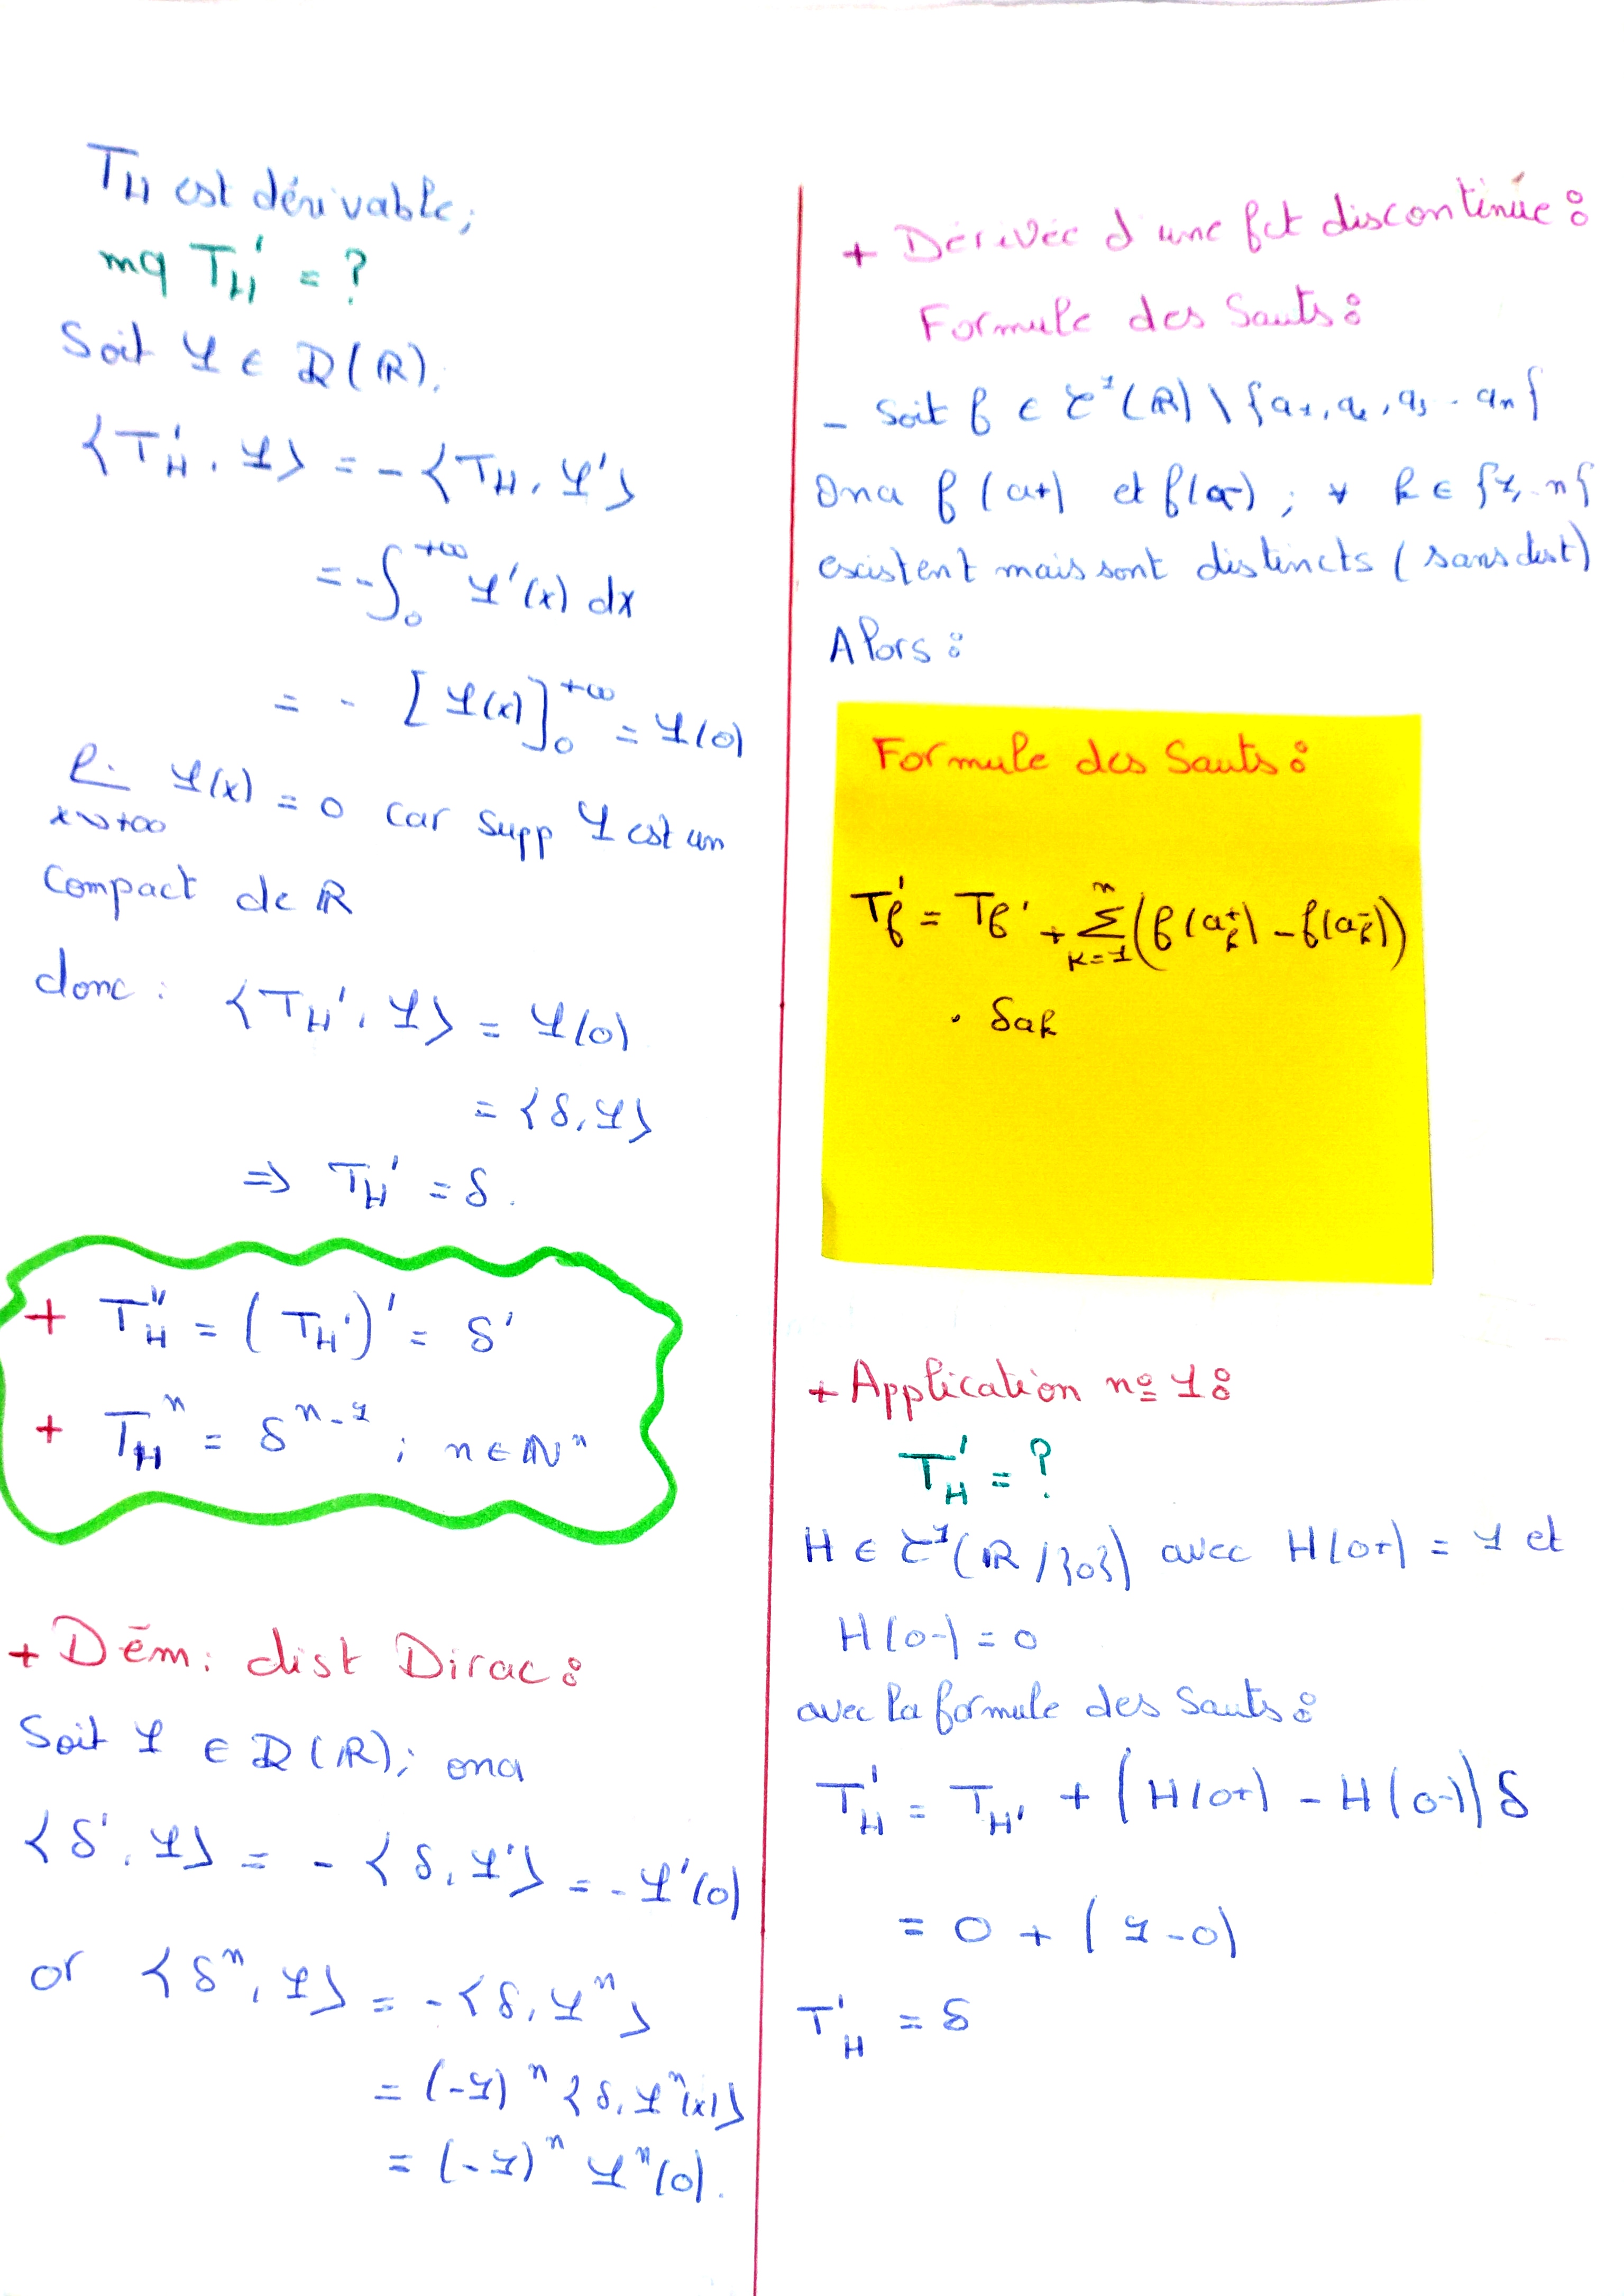 T_H est dérivable;
mq T_H' = ?
Soit φ ∈ D(ℝ).
⟨T'_H, φ⟩ = -⟨T_H, φ'⟩
= -∫₀^{+∞} φ'(x) dx
= - [φ(x)]₀^{+∞} = φ(0)
φ(x) = 0 car supp φ est un
x→+∞
Compact de ℝ
donc : ⟨T_H', φ⟩ = φ(0)
= ⟨δ, φ⟩
⇒ T_H' = δ.
+ T''_H = (T_H')' = δ'
+ T_H^n = δ^{n-1} ; n ∈ ℕ*
+ Dém : dist Dirac :
Soit φ ∈ D(ℝ); ona
⟨δ', φ⟩ = - ⟨δ, φ'⟩ = - φ'(0)
or ⟨δ^n, φ⟩ = -⟨δ, φ^n⟩
= (-1)^n ⟨δ, φ^n(x)⟩
= (-1)^n φ^n(0).
+ Dérivée d'une fct discontinue :
Formule des Sauts :
- Soit f ∈ C¹(ℝ) \ {a₁, a₂, a₃ .. aₙ}
Ona f(a+) et f(a-) ; ∀ k ∈ {1, .. n}
existent mais sont distincts (sans dist)
Alors :
Formule des Sauts :
T'_f = T_f' + Σ_{k=1}^n (f(a_k^+) - f(a_k^-))
. δ_{ak}
+ Application n° 1 :
T'_H = ?
H ∈ C¹(ℝ/{0}) avec H(0+) = 1 et
H(0-) = 0
avec la formule des Sauts :
T'_H = T_H' + (H(0+) - H(0-)) δ
= 0 + (1-0)
T'_H = δ